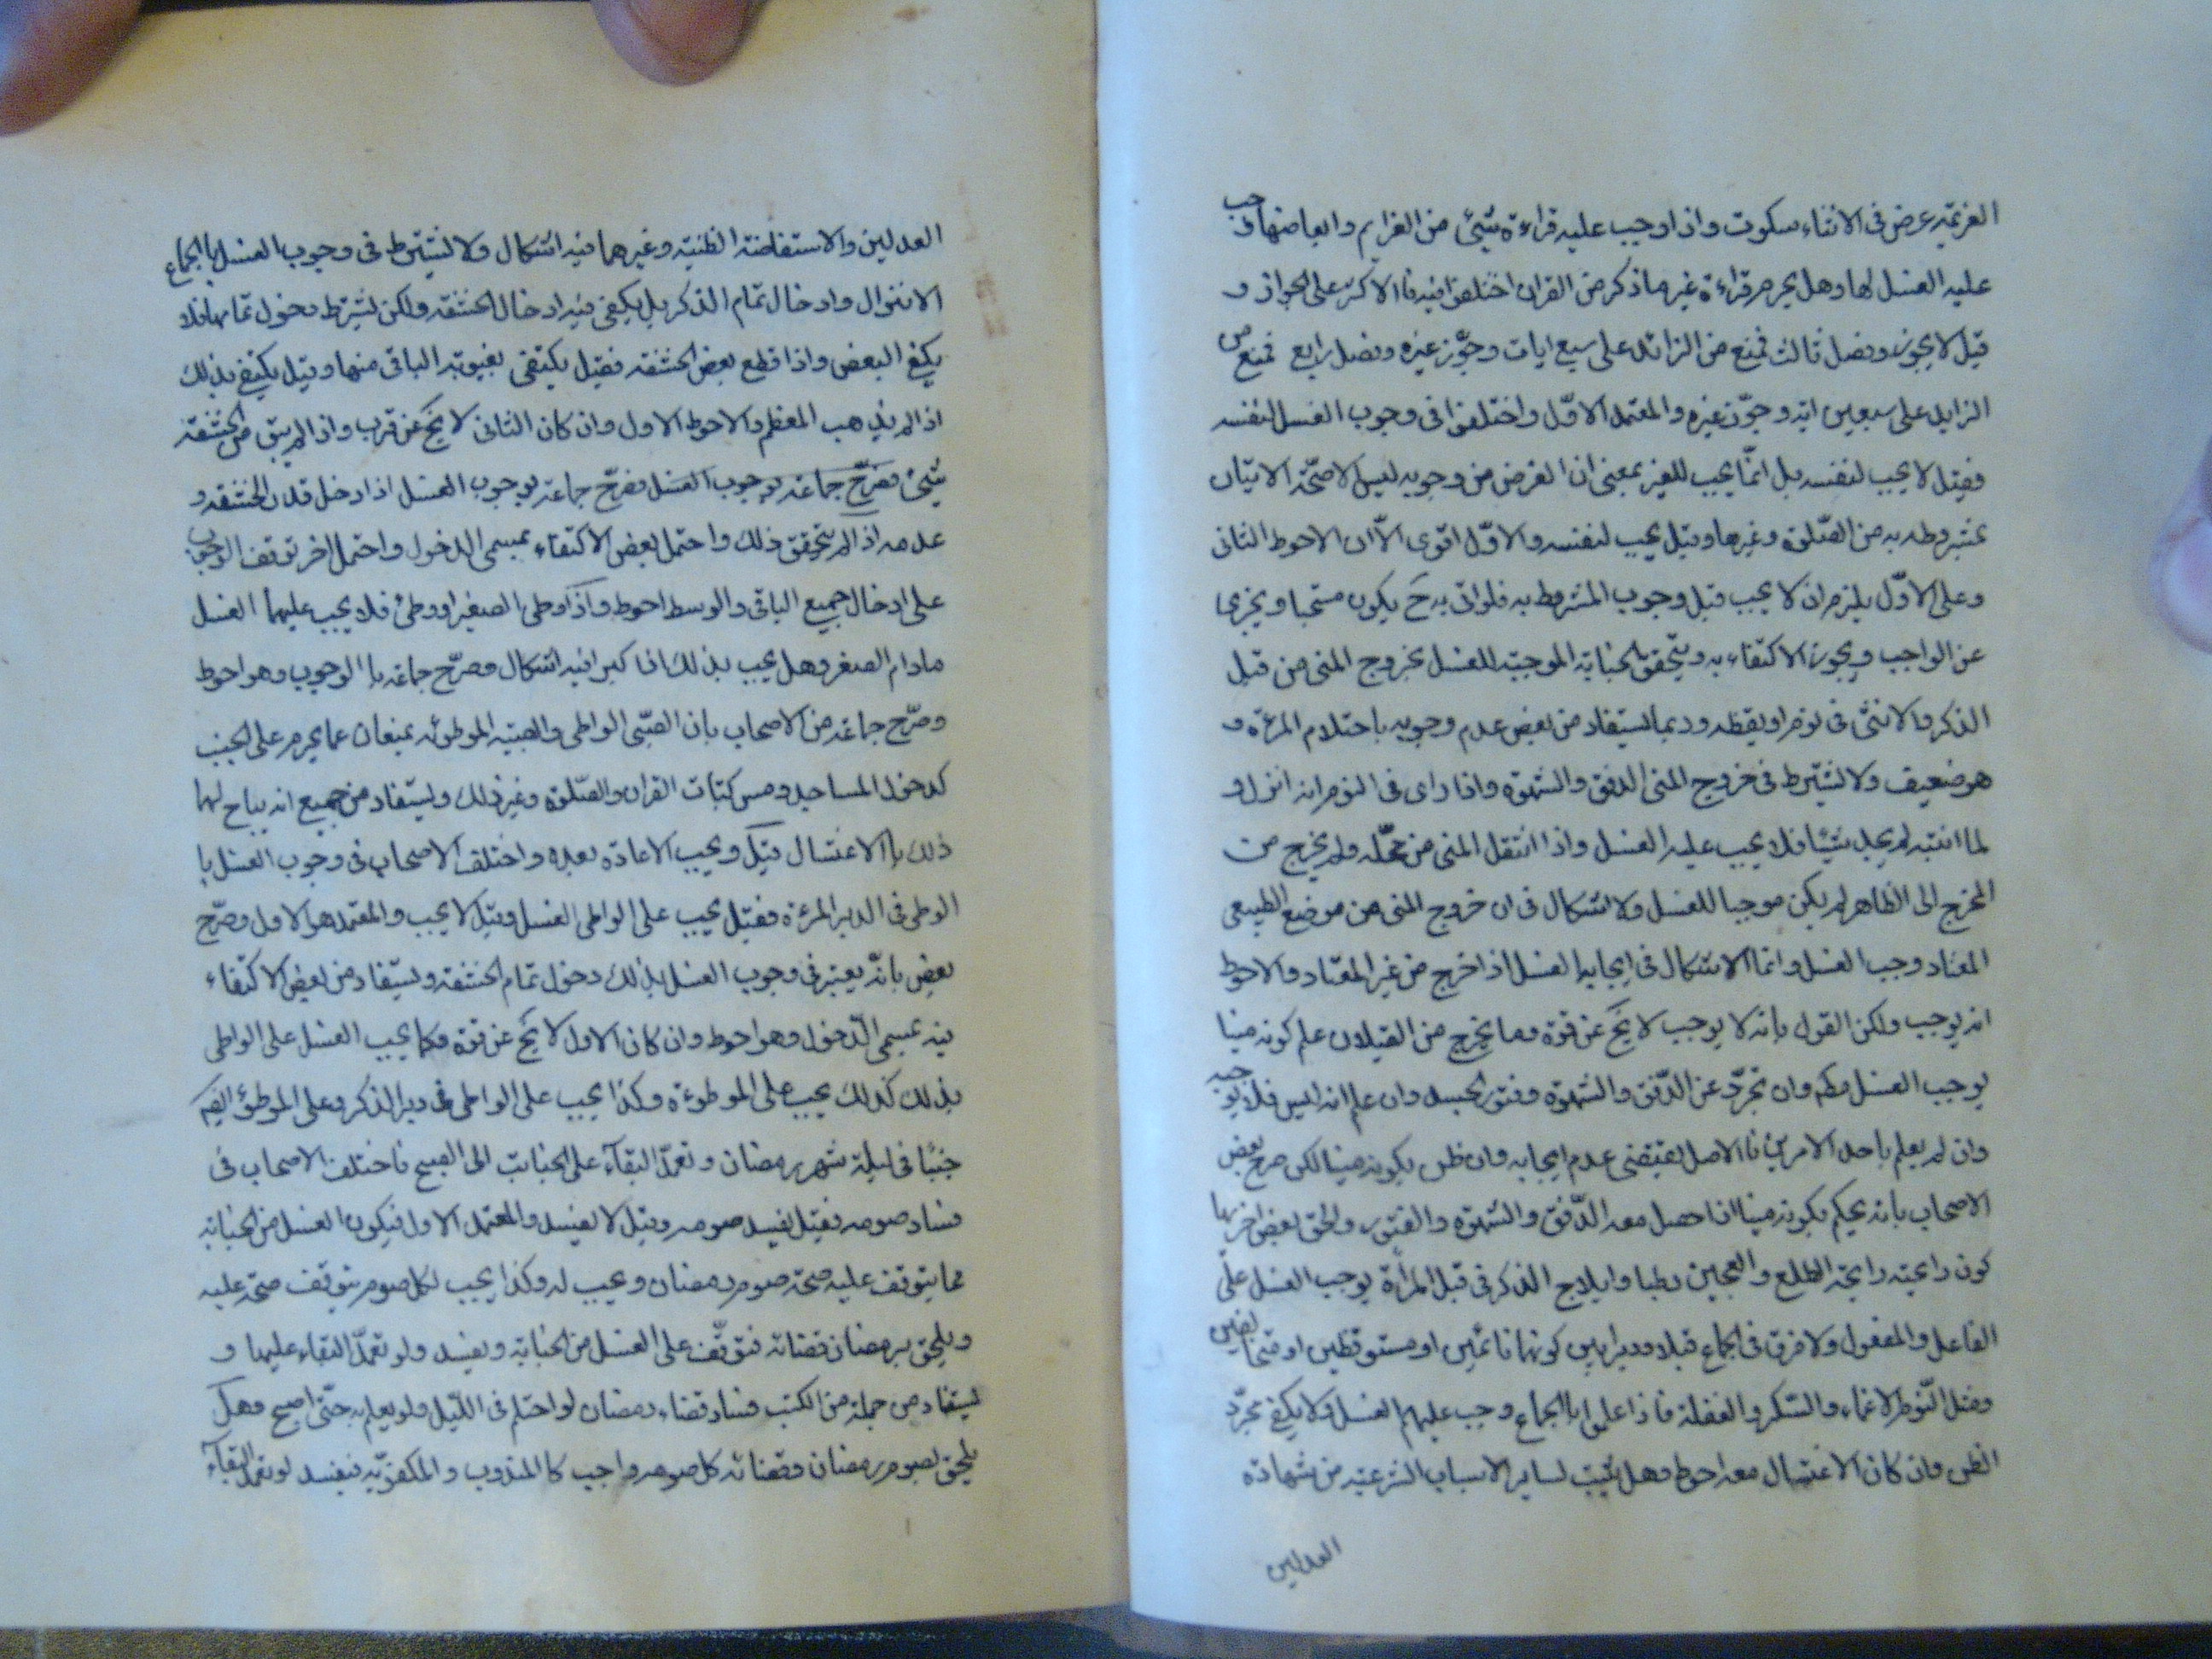 العزيمة عرض في الاثناء سكوت واذا وجب عليه قراءة شيئ من العزايم وابعاضها وجب
عليه الغسل لها وهل يحرم قراءة غير ما ذكر من القران اختلفوا فيه فالاكثر على الجواز و
قيل لا يجوز وفصل ثالث فمنع من الزائد على سبع ايات وجوّز غيره وفصل رابع فمنع من
الزايد على سبعين اية وجوّز غيره والمعتمد الاوّل واختلفوا في وجوب الغسل لنفسه
فقيل لا يجب لنفسه بل انّما يجب للغير بمعنى ان الغرض من وجوبه ليس الا صحّة الاتيان
بمشروطه به من الصّلوة وغيرها وقيل يجب لنفسه والاوّل اقوى الّا ان الاحوط الثاني
وعلى الاوّل يلزم ان لا يجب قبل وجوب المشروط به فلو اتى به ح يكون مستحبا ويجزى
عن الواجب ويجوز الاكتفاء به ويتحقق الجنابة الموجبة للغسل بخروج المني من قبل
الذكر والانثى في نوم او يقظه وربما يستفاد من بعض عدم وجوبه باحتلام المرئة و
هو ضعيف ولا يشترط في خروج المني الدفق والشهوة واذا راى في النوم انه انزل و
لما انتبه لم يجد شيئًا فلا يجب عليه الغسل واذا انتقل المني من محلّه ولم يخرج من
المخرج الى الظاهر لم يكن موجبا للغسل ولا اشكال في ان خروج المني من موضع الطبيعي
المعتاد وجب الغسل وانما الاشكال في ايجابه الغسل اذا خرج من غير المعتاد والاحوط
انه يوجب ولكن القول بانه لا يوجب لا يخ عن قوة وما يخرج من القبلان علم كونه منيا
يوجب الغسل مطم وان تجرّد عن الدّفق والشهوة وفتور الجسد وان علم انه ليس فلا يوجبه
وان لم يعلم باحد الامرين فالاصل يقتضى عدم ايجابه وان ظن بكونه منيا لكن صرح بعض
الاصحاب بانه يحكم بكونه منيا اذا حصل معه الدّفق والشهوة والفتور والحق بعض اخر بها
كون رايحته رايحة الطلع والعجين رطبا وايلاج الذكر في قبل المراة يوجب الغسل على
الفاعل والمفعول ولا فرق في الجماع قبلا ودبرا بين كونها نائمين او مستوقظين او مختلفين
ومثل النّوم الاغماء والسّكر والغفلة فاذا علموا بالجماع وجب عليهم الغسل ولا يكفى مجرّد
الظن وان كان الاغتسال معه احوط وهل يثبت بساير الاسباب الشرعيّة من شهادة
العدلين
العدلين والاستفاضة الظنية وغيرهما فيه اشكال ولا يشترط في وجوب الغسل بالجماع
الانزال وادخال تمام الذكر بل يكفى فيه ادخال الحشفة ولكن يشترط دخول تمامها فلا
يكفى البعض واذا قطع بعض الحشفة فقيل يكتفى بغيوبة الباقى منها وقيل يكتفى بذلك
اذا لم يذهب المعظم والاحوط الاول وان كان الثانى لا يخ عن قرب واذا لم يبق من الحشفة
شيئ فصرّح جماعة بوجوب الغسل فصرّح جماعة بوجوب الغسل اذا ادخل قدر الحشفة و
عدمه اذا لم يتحقق ذلك واحتمل بعض الاكتفاء بمسمى الدخول واحتمل اخر توقف الوجوب
على ادخال جميع الباقى والوسط احوط واذا وطى الصغير او وطئ فلا يجب عليهما الغسل
مادام الصغر وهل يجب بذلك اذا كبرا فيه اشكال وصرّح جماعة بالوجوب وهو احوط
وصرّح جماعة من الاصحاب بان الصّبى الواطى والصبيّة الموطوئه يمنعان عما يحرم على الجنب
كدخول المساجد ومس كتابت القران والصّلوة وغير ذلك ويستفاد من جميع انه يباح لهما
ذلك بالاغتسال قبل ويجب الاعادة بعده واختلف الاصحاب في وجوب الغسل با
الوطى في الدبر المرئة فقيل يجب على الواطى الغسل وقيل لا يجب والمعتمد هو الاول وصرّح
بعض بانّه يعتبر في وجوب الغسل بذلك دخول تمام الحشفة ويستفاد من بعض الاكتفاء
فيه بمسمى الدّخول وهو احوط وان كان الاول لا يخ عن قوة وكما يجب الغسل على الواطى
بذلك كذلك يجب على الموطوءة وكذا يجب على الواطى في دبر الذكر وعلى الموطوئ
جنبًا في ليلة شهر رمضان وتعمّد البقآء على الجنابت الى الصبح فاختلف الاصحاب في
فساد صومه فقيل يفسد صومه وقيل لا يفسد والمعتمد الاول فيكون الغسل من الجنابة
مما يتوقف عليه صحة صوم رمضان ويجب له وكذا يجب لكل صوم يتوقف صحّة عليه
ويلحق برمضان قضائه فتوقّف على الغسل من الجنابة ويفسد ولو تعمّد البقاء عليها و
يستفاد من جملة من الكتب فساد قضاء رمضان لو احتلم في الليل ولو يعلم به حتّى اصبح وهل
يلحق بصوم رمضان وقضائه كل صوم واجب كالمنذوب والمكفّريّه فيفسد لو تعمد البقآء